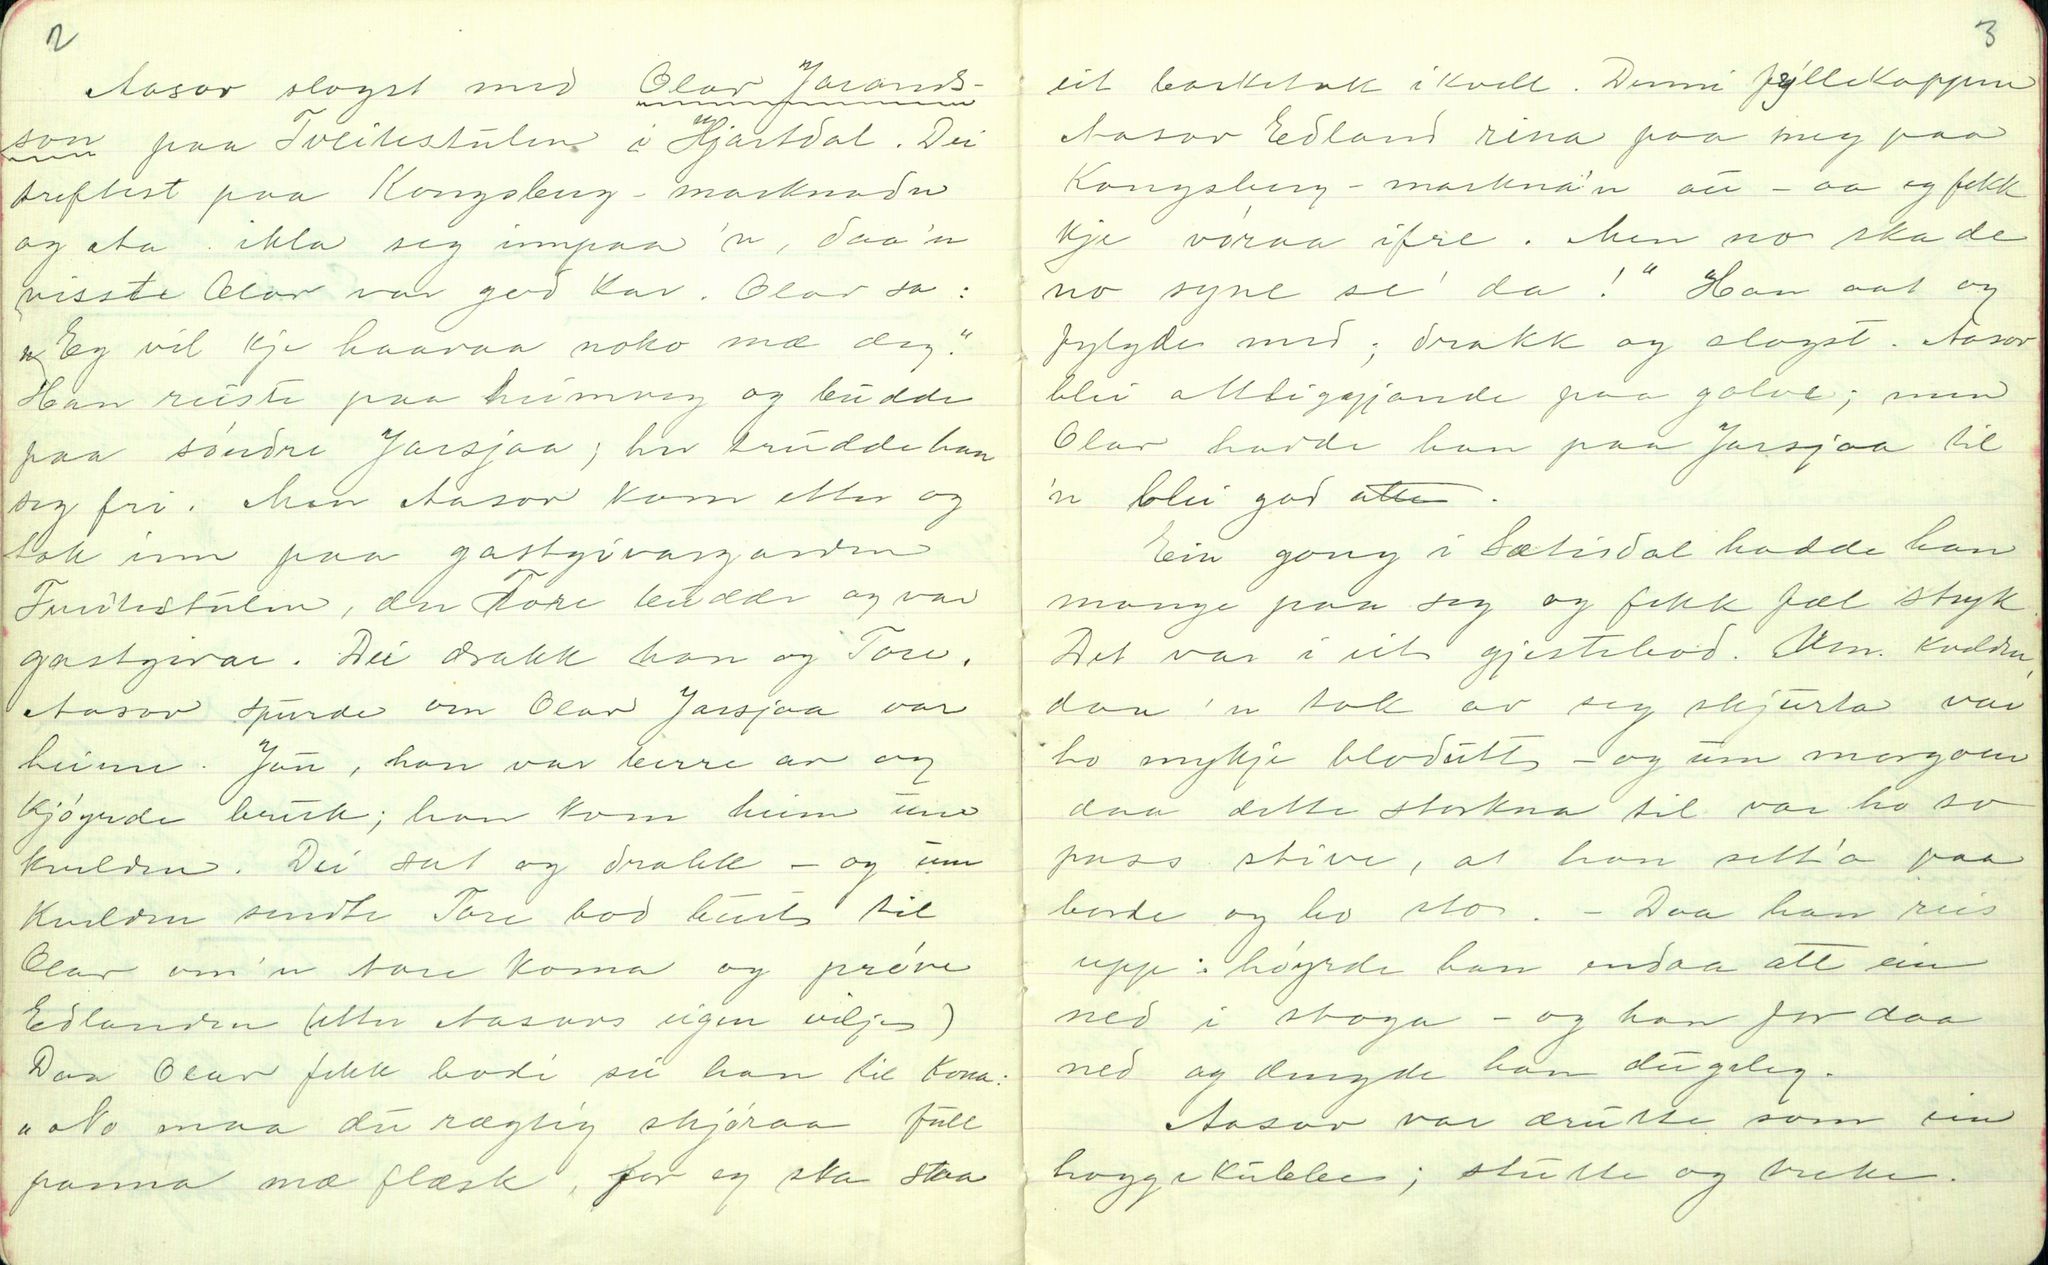 2
Aasov slogst med Olav Jarands-
son paa Tveitestulen i Hjartdal. Dei
treftest paa Kongsberg-marknadn
og Aa. ikla seg innpaa 'n, daa'n
visste Olav var god kar. Olav sa:
"Eg vil kje haavaa noko mæ deg."
Han reiste paa heimveg og budde
paa söndre Jarsjaa; her trudde han
seg fri. Men Aasov kom etter og
tok inn paa gastgivargarden
Tveitestulen, der Tore budde og var
gastgivar. Dei drakk han og Tore.
Aasov spurde om Olav Jarsjaa var
heime. Jau, han var berre av og
kjöyrde brisk; han kom heim um
kvelden. Dei sat og drakk – og um
kvelden sendte Tore bod burt til
Olav om'n tore koma og pröve
Edlanden (etter Aasovs eigen vilje)
Daa Olav fekk bodi sa han til kona:
"No maa du rægtig skjöraa full
panna mæ flæsk, for eg ska staa
3
eit basketak ikvell. Denni fyllekoppen
Aasov Edland reina paa meg paa
Kongsberg-markna'n au – aa eg fekk
kje våraa ifre. Men no ska de
no syne se' da!" Han aat og
fylgde med; drakk og slogst. Aasov
blei attliggjande paa golve; men
Olav hadde han paa Jarsjaa til
'n blei god atte.
Ein gong i Sætisdal hadde han
mange paa seg og fekk fæl stryk.
Det var i eit gjestebod. Um kvelden,
daa 'n tok av seg skjurta var
ho mykje blodutt – og um morgoen
daa dette storkna til var ho so
pass stive, at han sett'a paa
borde og ho sto. – Daa han reis
upp: höyrde han endaa att ein
ned i stoga – og han for daa
ned og dengde han dugeleg.
Aasov var drutte som ein
hoggekubbe; stutte og breke.